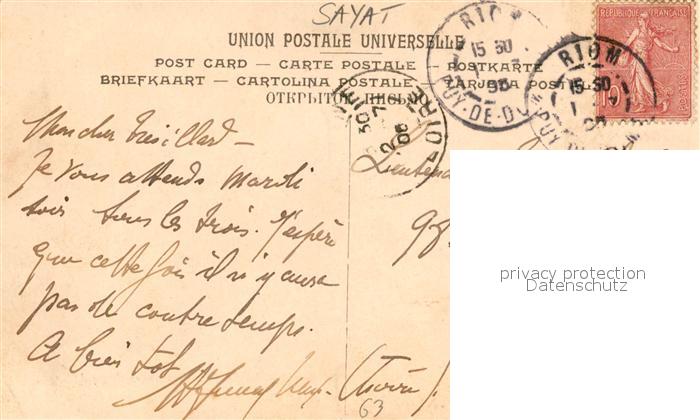 SAYAT
UNION POSTALE UNIVERSELLE
POST CARD — CARTE POSTALE — POSTKARTE
BRIEFKAART — CARTOLINA POSTALE —
ОТКРЫТОЕ ПИСЬМО
RIOM
15 30
PUY-DE-DOME
RIOM
15 30
RIOM
REPUBLIQUE FRANÇAISE
10
POSTES
Mon cher
Je vous attends mardi
soir tous les trois. J'espère
que cette fois il n'y aura
pas de contre temps.
A bien tot
98
63
privacy protection
Datenschutz